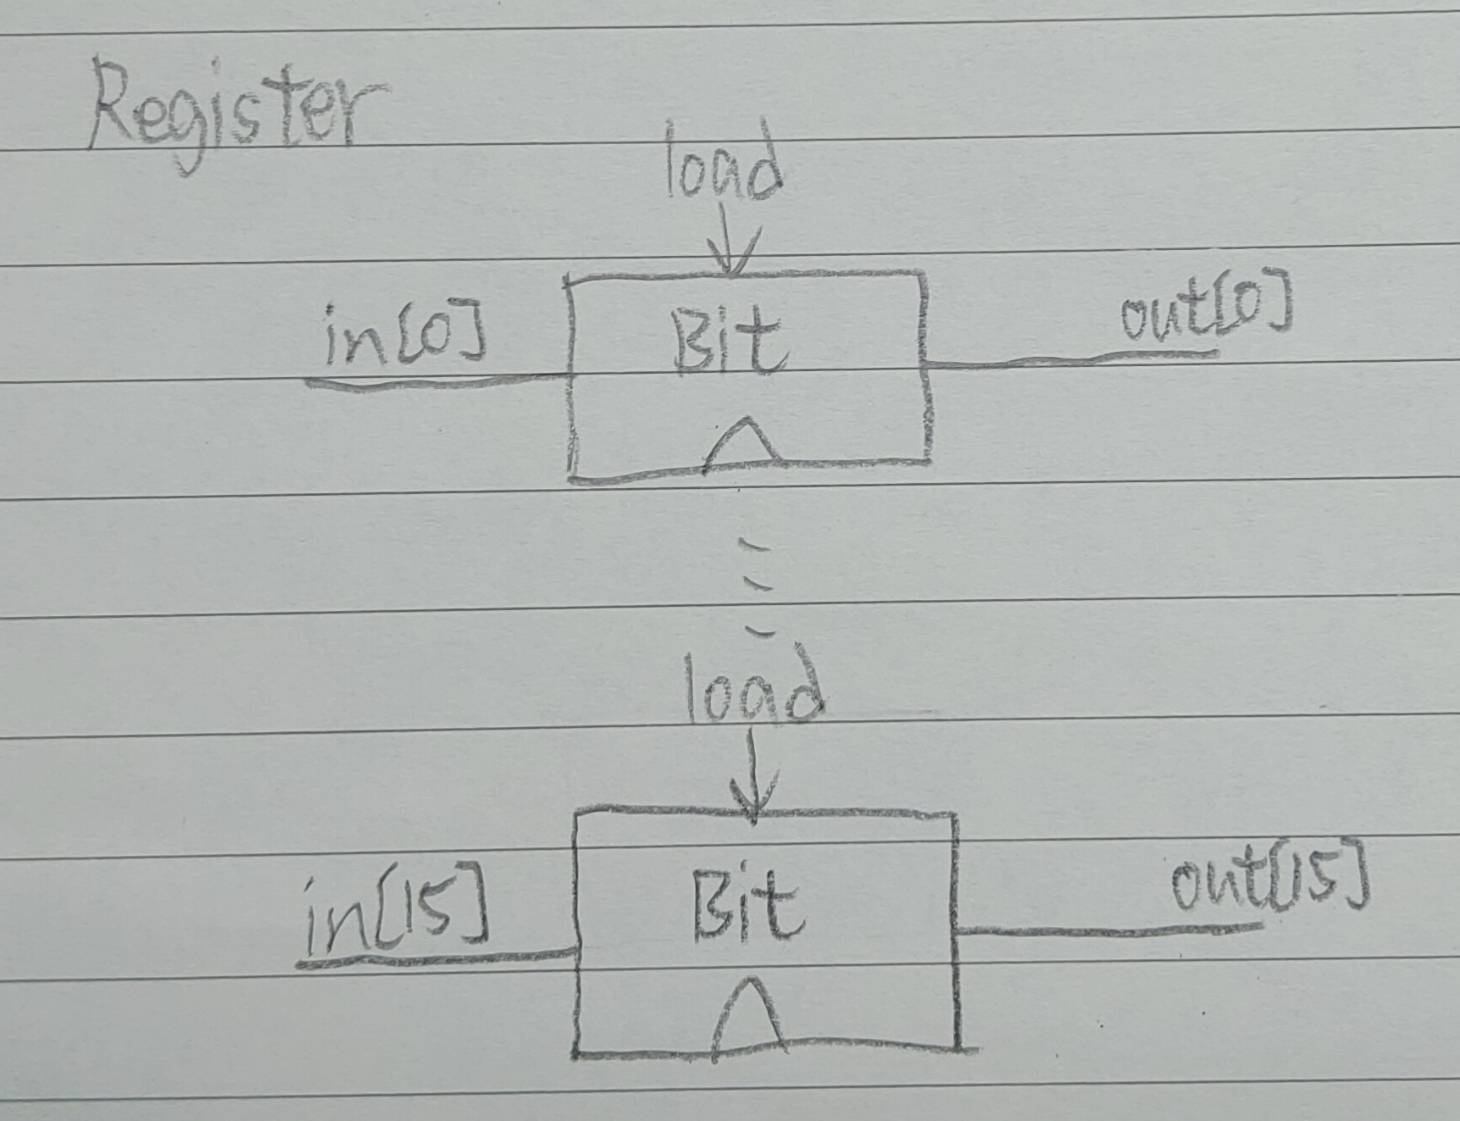 Register
load
in[0] Bit out[0]
load
in[15] Bit out[15]